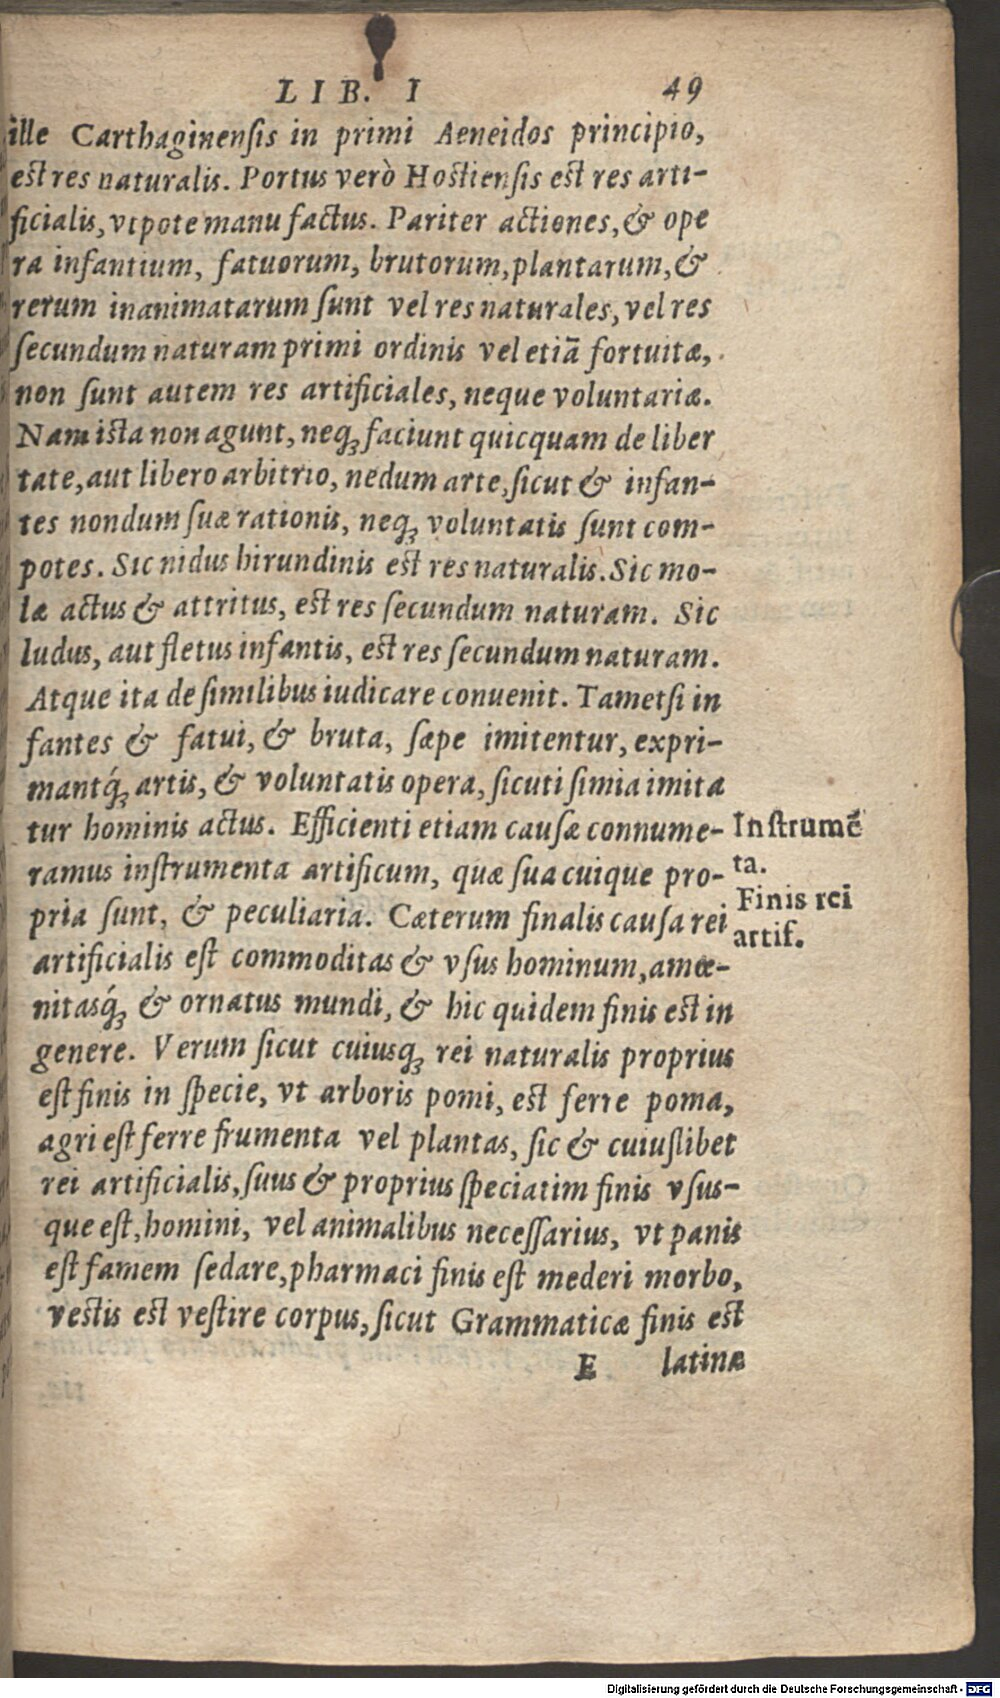 LIB. I 49
ille Carthaginenſis in primi Aeneidos principio,
eſt res naturalis. Portus verò Hoſtienſis eſt res arti-
ficialis, vtpote manu factus. Pariter actiones, & ope
ra infantium, fatuorum, brutorum, plantarum, &
rerum inanimatarum ſunt vel res naturales, vel res
ſecundum naturam primi ordinis vel etiā fortuitæ,
non ſunt autem res artificiales, neque voluntariæ.
Nam iſta non agunt, neqꝫ faciunt quicquam de liber
tate, aut libero arbitrio, nedum arte, ſicut & infan-
tes nondum ſuæ rationis, neqꝫ voluntatis ſunt com-
potes. Sic nidus hirundinis eſt res naturalis. Sic mo-
læ actus & attritus, eſt res ſecundum naturam. Sic
ludus, aut fletus infantis, eſt res ſecundum naturam.
Atque ita de ſimilibus iudicare conuenit. Tametſi in
fantes & fatui, & bruta, ſæpe imitentur, expri-
mantq́ꝫ artis, & voluntatis opera, ſicuti ſimia imita
tur hominis actus. Efficienti etiam cauſæ connume-
ramus inſtrumenta artificum, quæ ſua cuique pro-
pria ſunt, & peculiaria. Cæterum finalis cauſa rei
artificialis eſt commoditas & vſus hominum, amœ-
nitasq́ꝫ & ornatus mundi, & hic quidem finis eſt in
genere. Verum ſicut cuiusqꝫ rei naturalis proprius
eſt finis in ſpecie, vt arboris pomi, eſt ferre poma,
agri eſt ferre frumenta vel plantas, ſic & cuiuſlibet
rei artificialis, ſuus & proprius ſpeciatim finis vſus-
que eſt, homini, vel animalibus neceſſarius, vt panis
eſt famem ſedare, pharmaci finis eſt mederi morbo,
veſtis eſt veſtire corpus, ſicut Grammaticæ finis eſt
E latinæ
Inſtrumē
ta.
Finis rei
artif.
Digitalisierung gefördert durch die Deutsche Forschungsgemeinschaft - DFG